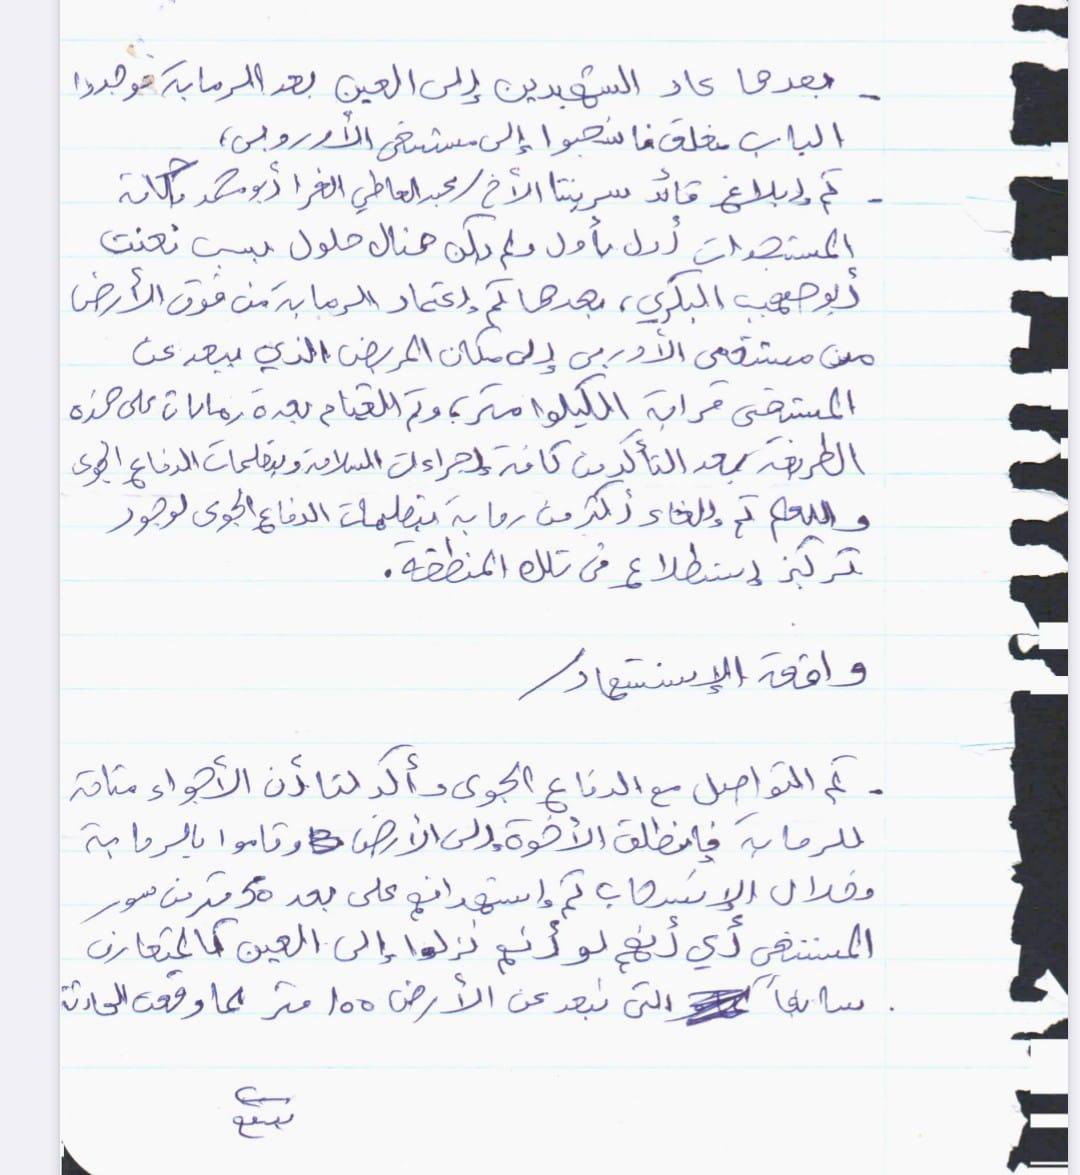 - بعدها عاد الشهيدين إلى العين بعد الرماية فوجدوا
الباب مغلق فانسحبوا إلى مستشفى الأوروبي،
- تم إبلاغ قائد سريتنا الأخ/عبد العاطي الفرا أبو محمد بكافة
المستجدات أول بأول ولم يكن هناك حلول بسبب تعنت
أبو صهيب البكري، بعدها تم إعتماد الرماية من فوق الأرض
من مستشفى الأوربي إلى مكان المربض الذي يبعد عن
المستشفى قرابة الكيلوا متر، وتم القيام بعدة رمايات على هذه
الطريقة بعد التأكد من كافة إجراءات السلامة وبتعليمات الدفاع الجوي
تم إلغاء أكثر من رماية بتعليمات الدفاع الجوي لوجود
تركيز إستطلاع في تلك المنطقة.
واقعة الإستشهاد/
- تم التواصل مع الدفاع الجوي وأكد لنا أن الأجواء متاحة
للرماية فإنطلق الأخوة إلى الأرض وقاموا بالرماية
وخلال الإنسحاب تم إستهدافهم على بعد 50 متر من سور
المستشفى أي أنهم لو أنهم نزلوا إلى العين كالمتعارف
سابقاً التي تبعد عن الأرض 100 متر لما وقعت الحادثة.
يتبع